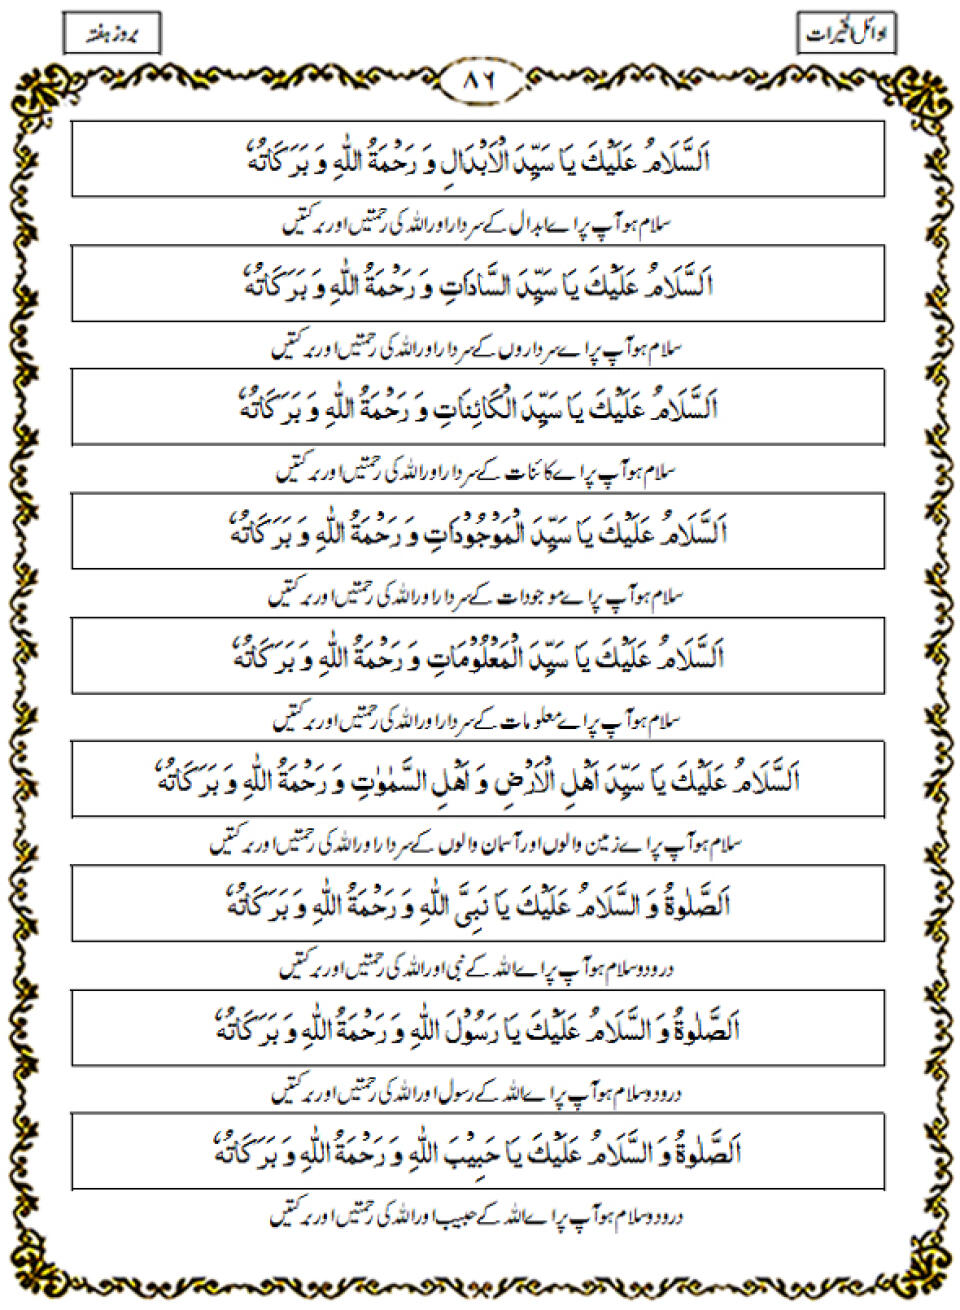 اوائل الخیرات
بروز ہفتہ
٨٦
اَلسَّلَامُ عَلَيْكَ يَا سَيِّدَ الْاَبْدَالِ وَ رَحْمَةُ اللّٰهِ وَ بَرَكَاتُهٗ
سلام ہو آپ پر اے ابدال کے سردار اور اللہ کی رحمتیں اور برکتیں
اَلسَّلَامُ عَلَيْكَ يَا سَيِّدَ السَّادَاتِ وَ رَحْمَةُ اللّٰهِ وَ بَرَكَاتُهٗ
سلام ہو آپ پر اے سرداروں کے سردار اور اللہ کی رحمتیں اور برکتیں
اَلسَّلَامُ عَلَيْكَ يَا سَيِّدَ الْكَائِنَاتِ وَ رَحْمَةُ اللّٰهِ وَ بَرَكَاتُهٗ
سلام ہو آپ پر اے کائنات کے سردار اور اللہ کی رحمتیں اور برکتیں
اَلسَّلَامُ عَلَيْكَ يَا سَيِّدَ الْمَوْجُوْدَاتِ وَ رَحْمَةُ اللّٰهِ وَ بَرَكَاتُهٗ
سلام ہو آپ پر اے موجودات کے سردار اور اللہ کی رحمتیں اور برکتیں
اَلسَّلَامُ عَلَيْكَ يَا سَيِّدَ الْمَعْلُوْمَاتِ وَ رَحْمَةُ اللّٰهِ وَ بَرَكَاتُهٗ
سلام ہو آپ پر اے معلومات کے سردار اور اللہ کی رحمتیں اور برکتیں
اَلسَّلَامُ عَلَيْكَ يَا سَيِّدَ اَهْلِ الْاَرْضِ وَ اَهْلِ السَّمٰوٰتِ وَ رَحْمَةُ اللّٰهِ وَ بَرَكَاتُهٗ
سلام ہو آپ پر اے زمین والوں اور آسمان والوں کے سردار اور اللہ کی رحمتیں اور برکتیں
اَلصَّلٰوةُ وَ السَّلَامُ عَلَيْكَ يَا نَبِيَّ اللّٰهِ وَ رَحْمَةُ اللّٰهِ وَ بَرَكَاتُهٗ
درود و سلام ہو آپ پر اے اللہ کے نبی اور اللہ کی رحمتیں اور برکتیں
اَلصَّلٰوةُ وَ السَّلَامُ عَلَيْكَ يَا رَسُوْلَ اللّٰهِ وَ رَحْمَةُ اللّٰهِ وَ بَرَكَاتُهٗ
درود و سلام ہو آپ پر اے اللہ کے رسول اور اللہ کی رحمتیں اور برکتیں
اَلصَّلٰوةُ وَ السَّلَامُ عَلَيْكَ يَا حَبِيْبَ اللّٰهِ وَ رَحْمَةُ اللّٰهِ وَ بَرَكَاتُهٗ
درود و سلام ہو آپ پر اے اللہ کے حبیب اور اللہ کی رحمتیں اور برکتیں